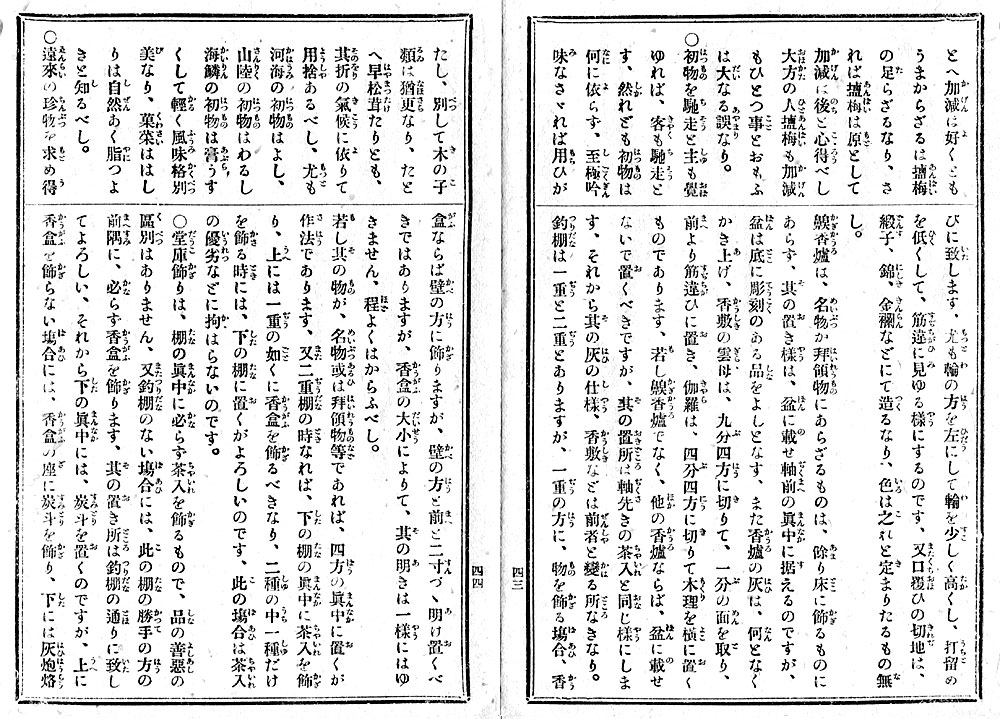 とへ加減は好くとも
うまからざるは鹽梅
の足らざるなり、さ
れば鹽梅は原として
加減は後と心得べし
大方の人鹽梅も加減
もひとつ事とおもふ
は大なる誤なり。
〇初物を馳走と主も覺
ゆれば、客も馳走と
す、然れども初物は
何に依らす、至極吟
味なさゞれば用ひが
びに致します、尤も輪の方を左にして輪を少しく高くし、打留め
を低くして、筋違に見ゆる樣にするのです、又口覆ひの切地は、
緞子、錦、金襴などにて造るなり、色は之れと定まりたるもの無
し。
香爐は、名物か拜領物にあらざるものは、餘り床に飾るものに
あらす、其の置き樣は、盆に載せ軸前の眞中に据えるのですが、
盆は底に彫刻のある品をよしとなす、また香爐の灰は、何となく
かき上げ、香敷の雲母は、九分四方に切りて、一分の面を取り、
前より筋違ひに置き、伽羅は、四分四方に切りて木理を橫に置く
ものであります、若し香爐でなく、他の香爐ならば、盆に載せ
ないで置くべきですが、其の置所は軸先きの茶入と同じ樣にしま
す、それから其の灰の仕樣、香敷などは前者と變る所なきなり。
釣棚は一重と二重とありますが、一重の方に、物を飾る塲合、香
四三
たし、別して木の子
類は猶更なり、たと
へ早松茸たりとも、
其折の氣候に依りて
用捨あるべし、尤も
河海の初物はよし、
山陸の初物はわるし
海鱗の初物は膏うす
くして輕く風味格別
美なり、菓菜ははし
りは自然あく脂つよ
きと知るべし。
〇遠來の珍物を求め得
盒ならば壁の方に飾りますが、壁の方と前と二寸づゝ明け置くべ
きではありますが、香盒の大小によりて、其の明きは一樣にはゆ
きません、程よくはからふべし。
若し其の物が、名物或は拜領物等であれば、四方の眞中に置くが
作法であります、又二重棚の時なれば、下の棚の眞中に茶入を飾
り、上には一重の如くに香盒を飾るべきなり、二種の中一種だけ
を飾る時には、下の棚に置くがよろしいのです、此の塲合は茶入
の優劣などに拘はらないのです。
〇堂庫飾りは、棚の眞中に必らす茶入を飾るもので、品の善惡の
區別はありません、又釣棚のない塲合には、此の棚の勝手の方の
前隅に、必らす香盒を飾ります、其の置き所は釣棚の通りに致し
てよろしい、それから下の眞中には、炭斗を置くのですが、上に
香盒を飾らない塲合には、香盒の座に炭斗を飾り、下には灰炮烙
四四